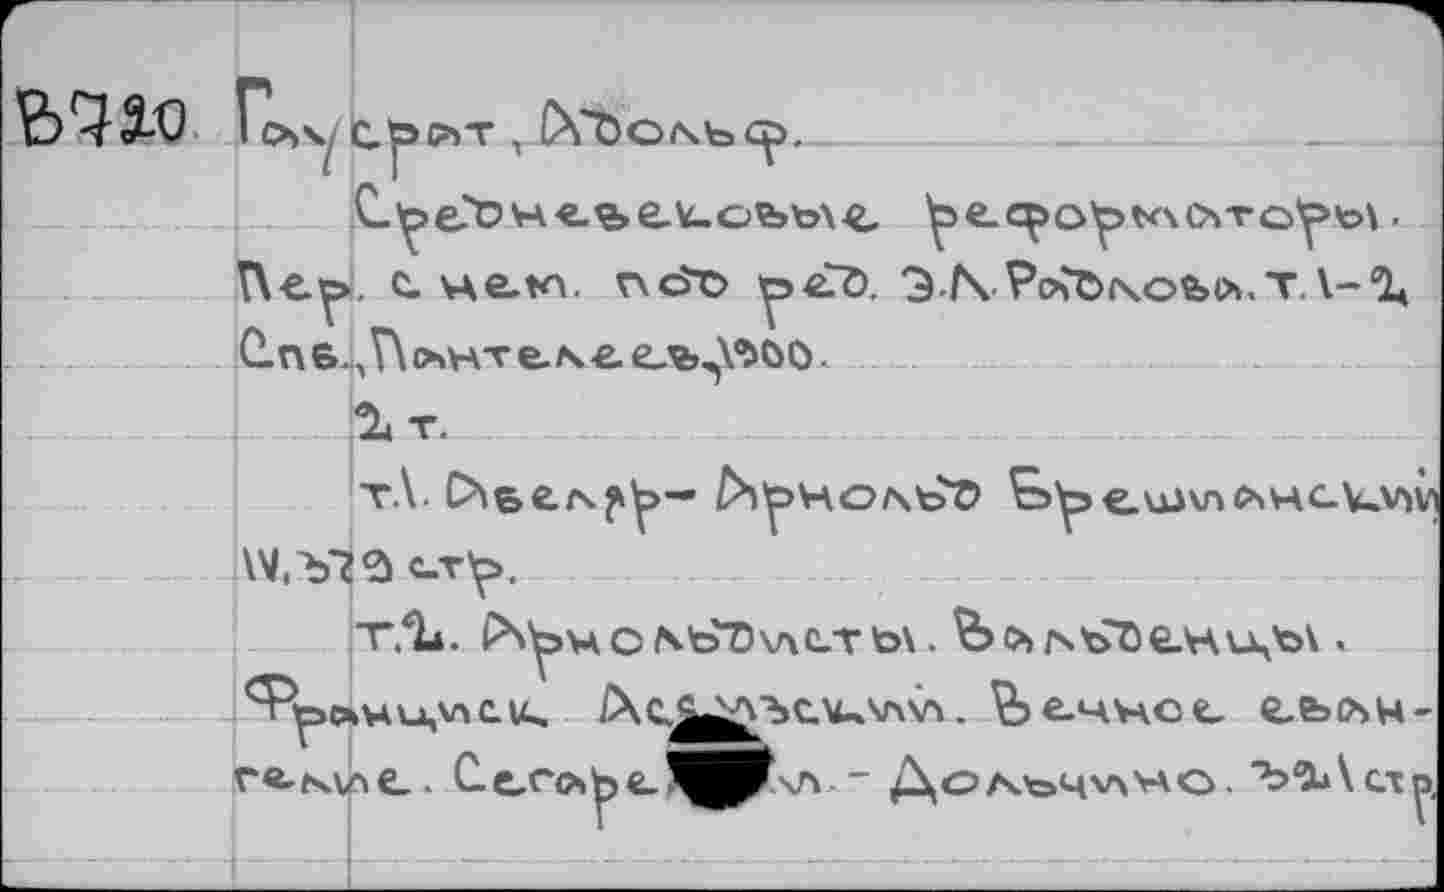 В720 Гаусрат, Адольф.
Средневековые реформаторы.
Пер. с нем. под ред. Э.Л.Радлова, т.1-2,
Спб., Пантелеев, 1900.
2 т.
т.1. Абеляр - Арнольд Брешианский
IV, 372 стр.
т.2. Арнольдисты. Вальденцы.
Франциск Ассизскии. Вечное еван-
гелие. Сегаре - Дольчино. 321 стр.